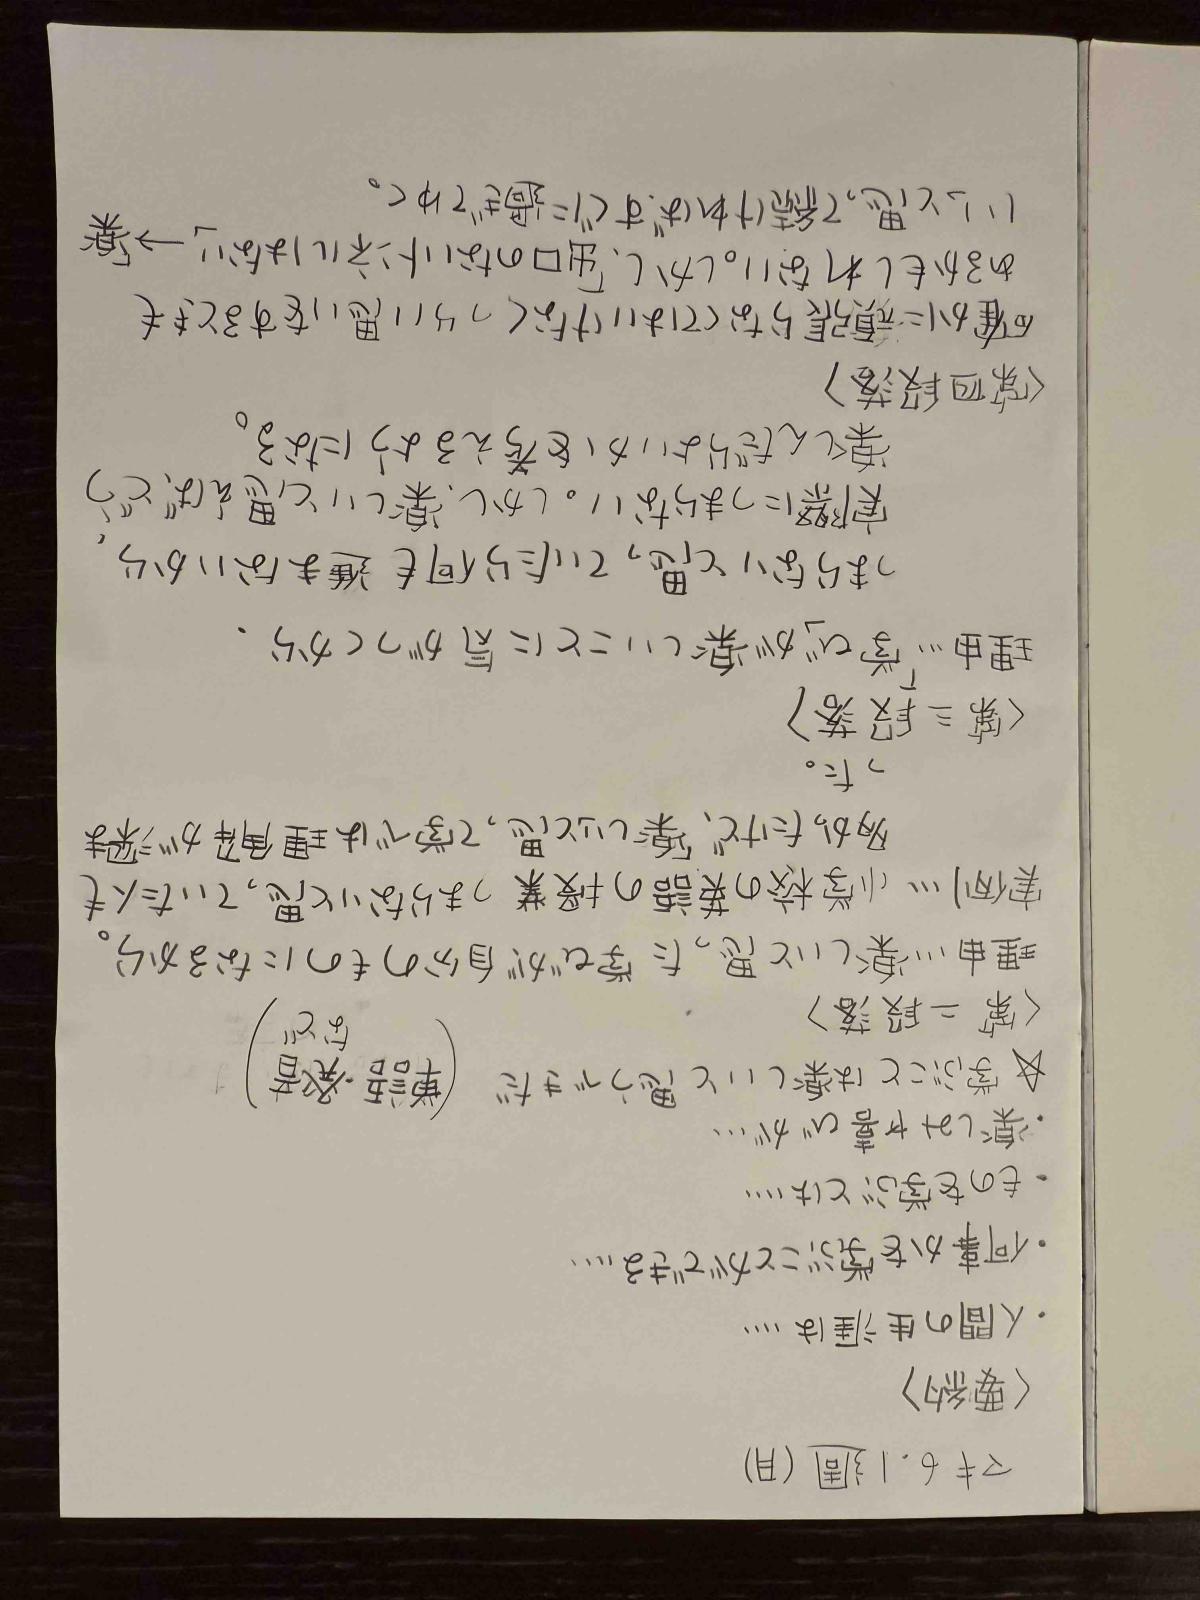 マキ6.1週(月)
〈要約〉
・人間の生涯は…
・何事かを学ぶことができる…
・ものを学ぶとは…
・楽しみや喜びが…
☆学ぶことは楽しいと思うべきだ (単語・発音など)
〈第二段落〉
理由…楽しいと思った学びが自分のものになるから。
実例…小学校の英語の授業 つまらないと思っていた人も
多かったけど、「楽しい」と思って学べば理解が深ま
った。
〈第三段落〉
理由…「学び」が楽しいことに気がつくから.
つまらないと思っていたら何も進まないから、
実際につまらない。しかし、楽しいと思えば、どう
楽しんだらよいかを考えるようになる。
〈第四段落〉
確かに頑張らなくてはいけなくつらい思いをするときも
あるかもしれない。しかし、「出口のないトンネルはない」→「楽
しい」と思って続ければ、すぐに過ぎてゆく。